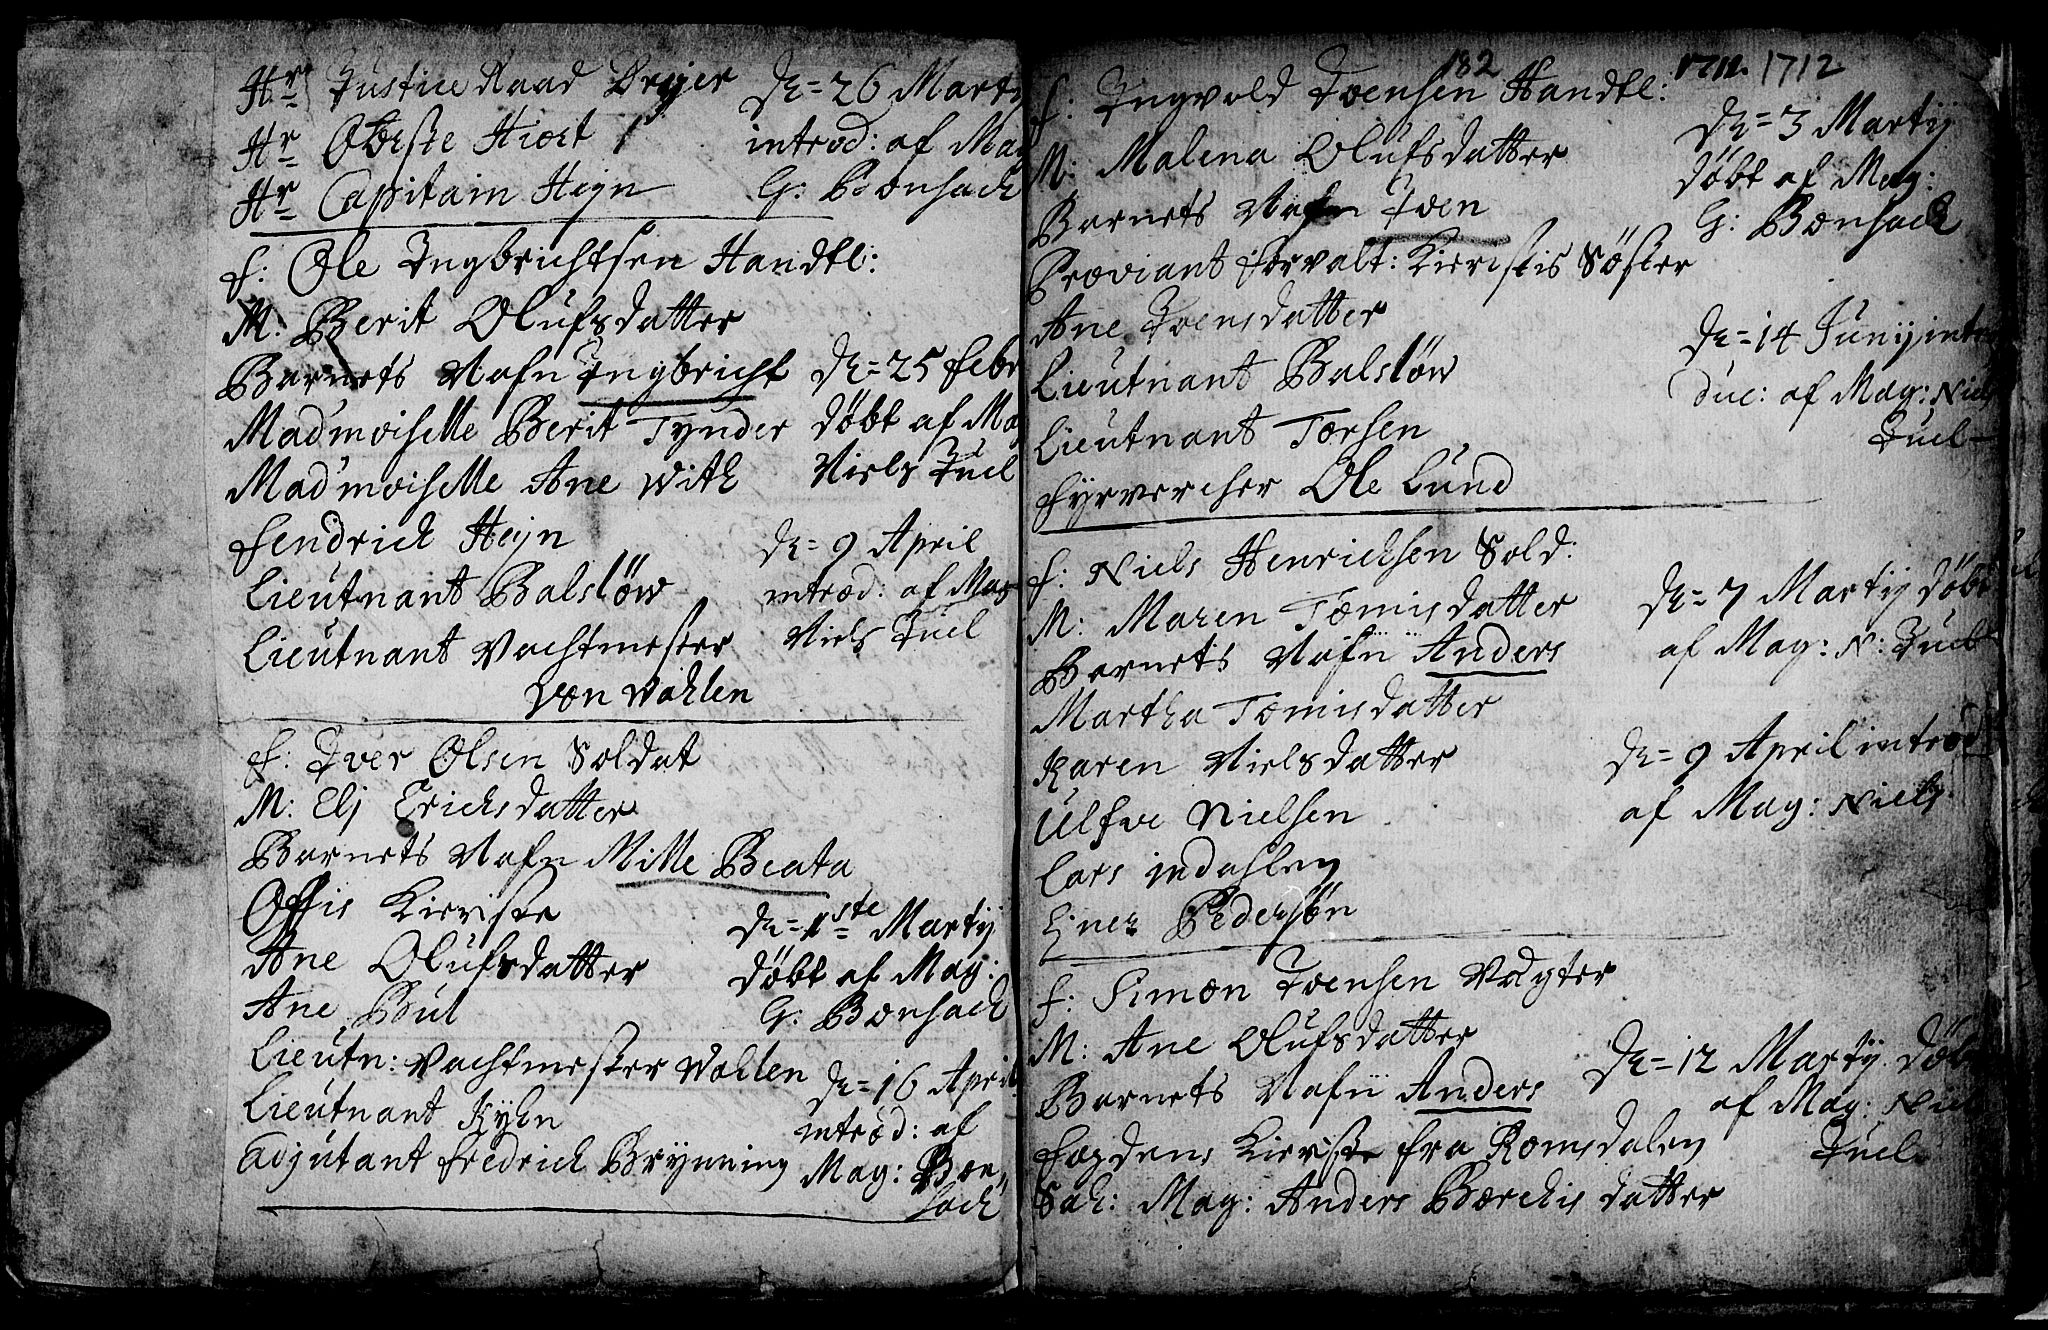 Hr Justice Raad Dreyer
Hr Obriste Hiort
Hr Capitain Heyn
D: 26 Martij
introd: af Mag
G: Bonsach
F: Ole Ingbrichtsen Handtl:
M: Berit Olufsdatter
Barnets Nafn Ingbricht
Madmoiselle Berit Tynder
Madmoiselle Ane With
Fendrich Heyn
Lieutnant Balslöw
Lieutnant Vachtmester
von Wahlen
D: 25 Febr
döbt af Mag
Niels Juel
D: 9 April
introd: af Mag
Niels Juel
F: Iver Olsen Soldat
M: Elj Erichsdatter
Barnets Nafn Mille Beata
Offis Kieriste
Ane Olufsdatter
Ane Bul
Lieutn: Vachtmester Wahlen
Lieutnant Kyhn
Adjutant Fredrich Brynning
D: 1ste Martij
döbt af Mag:
G: Bonsach
D: 16 April
introd: af
Mag: Bon
sach
182 1712. 1712
F: Ingvold Joensen Handtl:
M: Malena Olufsdatter
Barnets Nafn Joen
Proviant Forvalt: Kieristis Söster
Ane Joensdatter
Lieutnant Balslöw
Lieutnant Torsen
Fyrvercher Ole Lund
D: 3 Martij
döbt af Mag:
G: Bonsach
D: 14 Junij intro
duc: af Mag: Niels
Juel
F: Niels Henrichsen Sold:
M: Maren Tomisdatter
Barnets Nafn Anders
Martha Tomisdatter
Karen Nielsdatter
Ulfve Nielsen
Lars Indahlen
Einer Pedersön
D: 7 Martij döbt
af Mag: N: Juel
D: 9 April introd
af Mag: Niels
F: Simon Joensen Vagter
M: Ane Olufsdatter
Barnets Nafn Anders
Fogdens Kieriste fra Romsdalen
Sal: Mag: Anders Borchis datter
D: 12 Martij Döbt
af Mag: Niels
Juel